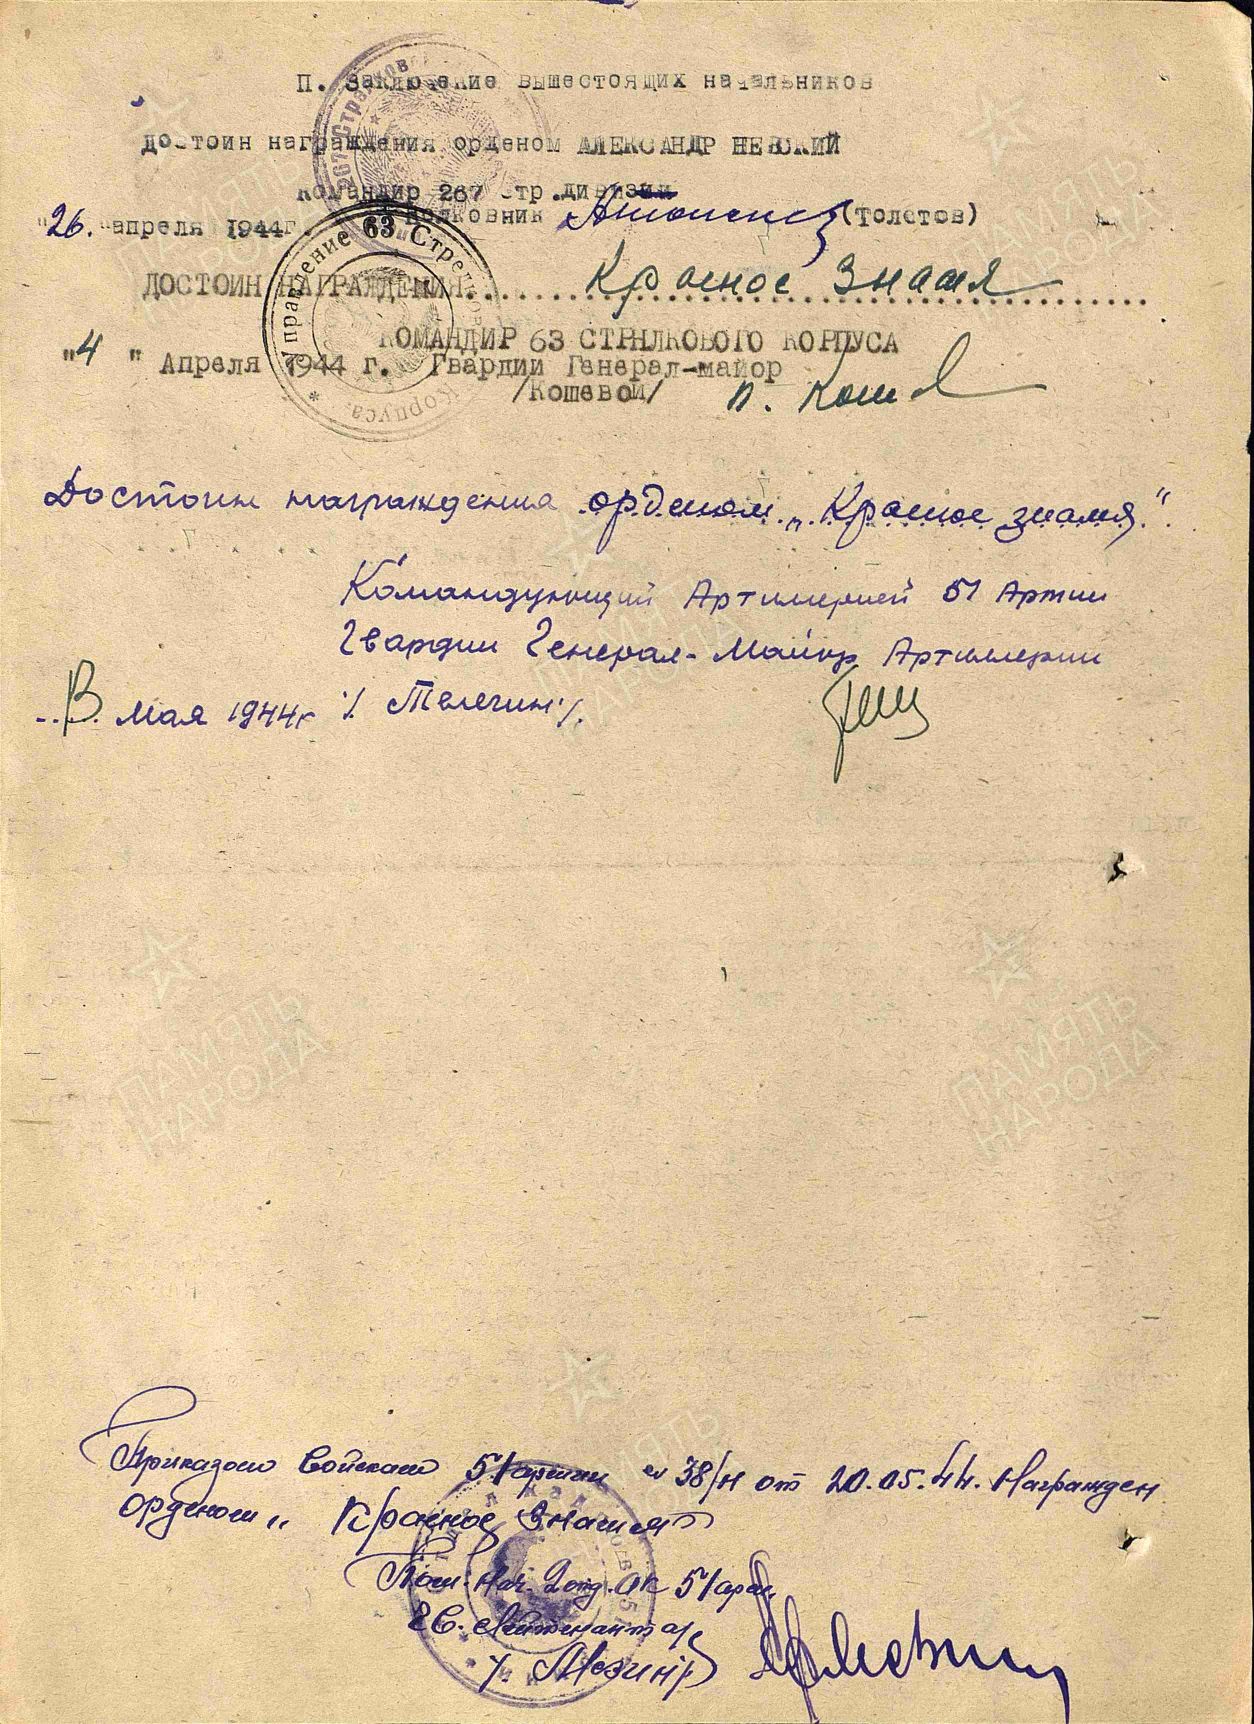 П. Заключение вышестоящих начальников
Достоин награждения орденом АЛЕКСАНДР НЕВСКИЙ
Командир 267 стр.дивизии
Полковник (Толстов)
"26. "апреля 1944г.
267 Стрелков
Управление 63 Стрелков Корпуса
ДОСТОИН НАГРАЖДЕНИЯ Красное Знамя
КОМАНДИР 63 СТРЕЛКОВОГО КОРПУСА
"4 " Апреля 1944 г. Гвардии Генерал-майор
/Кошевой/ п. Кошев
Достоин награждения орденом „Красное знамя."
Командующий Артиллерией 51 Армии
Гвардии Генерал-Майор Артиллерии
В мая 1944г /. Телегин /.
Приказом Войскам 51 армии № 38/н от 20.05.44. Награжден
орденом „ Красное Знамя"
Пом. Нач. 2 отд. ОК 51 арм.
Гв. Лейтенант а/с
ПАМЯТЬ
НАРОДА
ПАМЯТЬ
НАРОДА
ПАМЯТЬ
НАРОДА
ПАМЯТЬ
НАРОДА
ПАМЯТЬ
НАРОДА